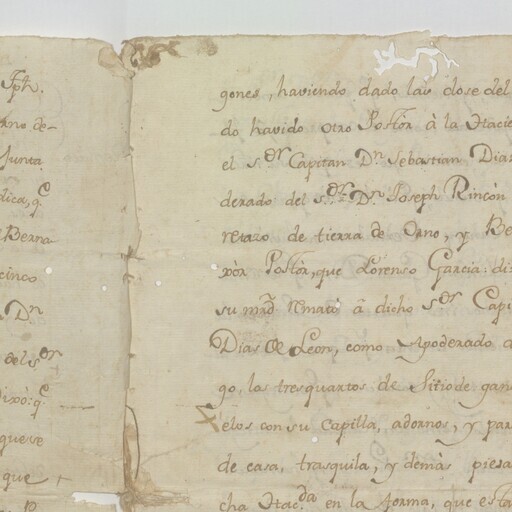 Jph.
orno de-
Junta
dica, q.e
Berna
cinco
D.n
del s.or
Dixò: q.e
que se
que
gones, haviendo dado las dose del
do havido otro Postòr à la Hacie
el s.or Capitan D.n Sebastian Dias
derado del s.or D.n Joseph Rincón
retazo de tierra de Orno, y Be
pòr Postòr, que Lorenso Garcia: di
su mrd remató â dicho s.or Capi
Dias de Leon, como Apoderado d
go, las tres quartos de Sitio de gan
elos con su capilla, adornos, y par
de casa, trasquila, y demàs piesa
cha Hac.da en la forma, que esta